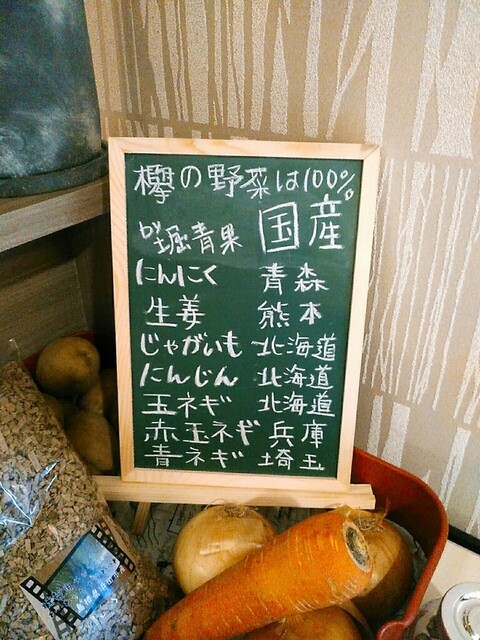 欅の野菜は100%
堀青果 国産
にんにく 青森
生姜 熊本
じゃがいも 北海道
にんじん 北海道
玉ネギ 北海道
赤玉ネギ 兵庫
青ネギ 埼玉